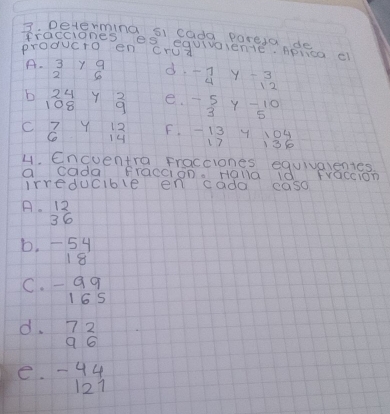 3. Determina si cada pareja de
fracciones es equivalente. Aplica el
producto en cruz
A. 3/2 y 9/6 d. -1/4 y -3/12
b 24/108 y 2/9 e. -5/3 y -10/5
C 7/6 y 12/14 F. -13/17 y 104/136
4. Encuentra Fracciones equivalentes.
a cada Fracción. Halla la Fracción
irreducible en cada caso
A. 12/36
b. -54/18
C. -99/165
d. 72/96
e. -44/121